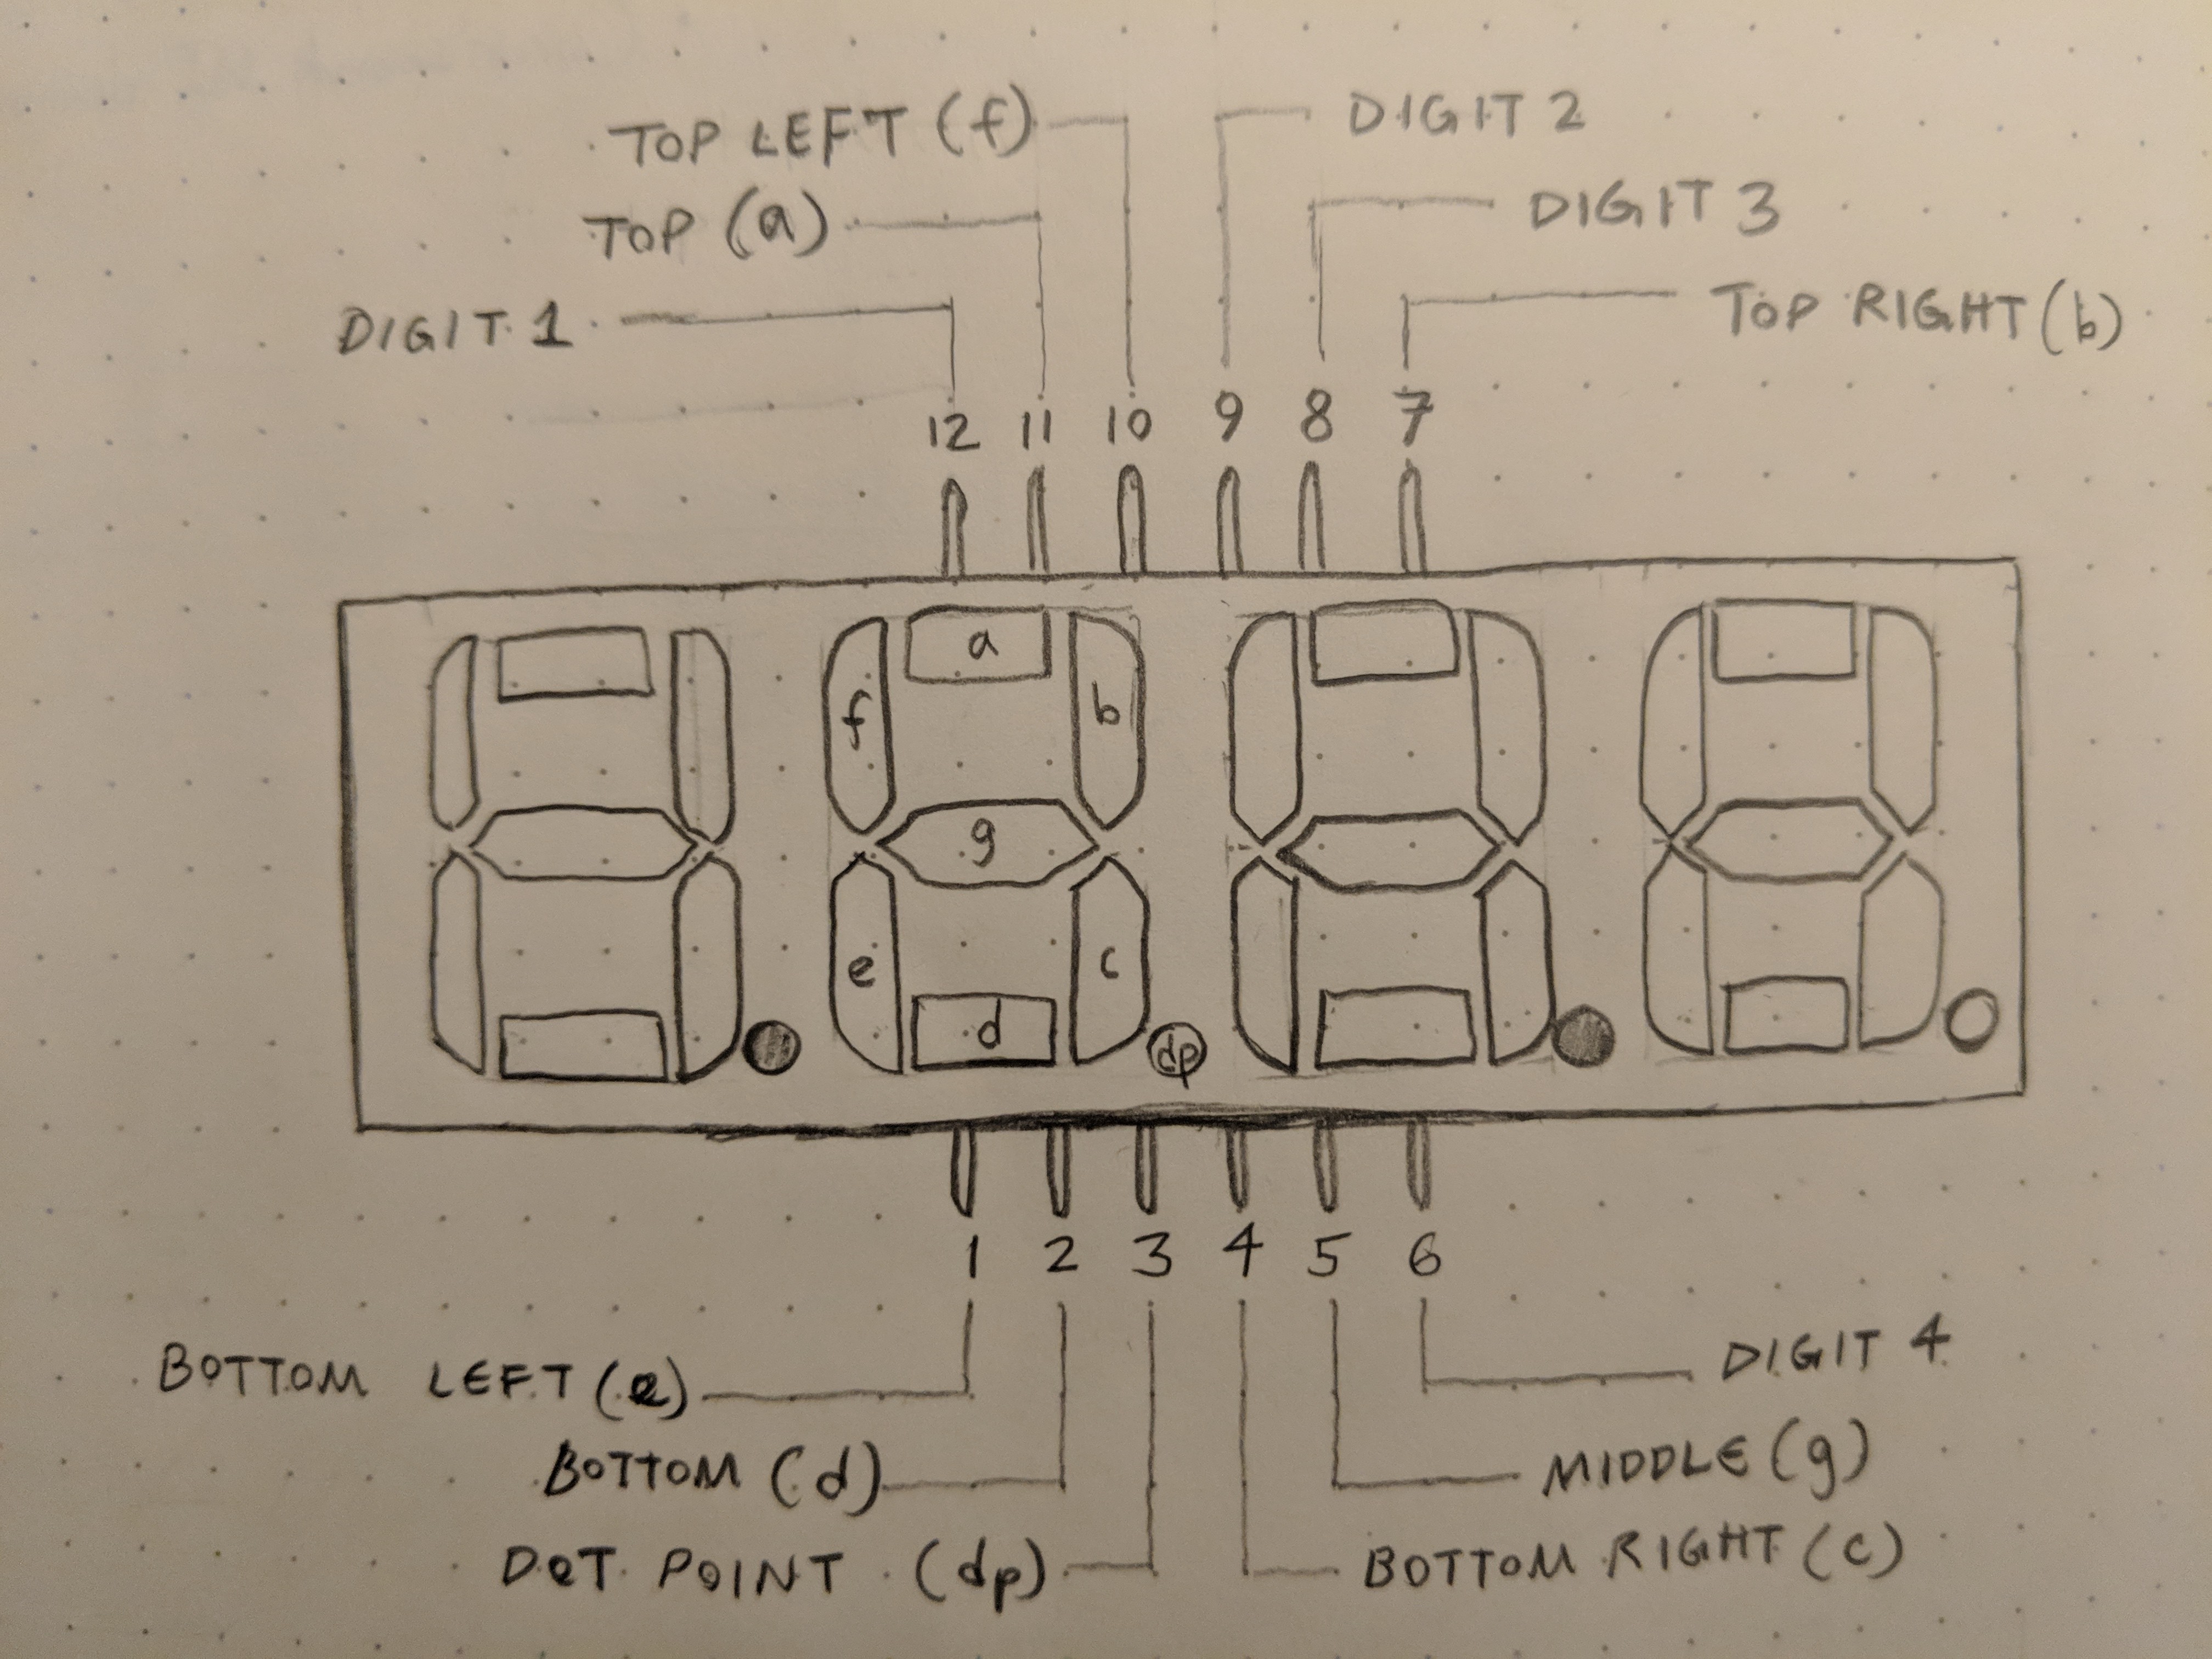 TOP LEFT (f)
DIGIT 2
TOP (a)
DIGIT 3
DIGIT 1
TOP RIGHT (b)
12 11 10 9 8 7
a
f
b
g
e
c
d
dp
1 2 3 4 5 6
BOTTOM LEFT (e)
DIGIT 4
BOTTOM (d)
MIDDLE (g)
DOT POINT (dp)
BOTTOM RIGHT (c)